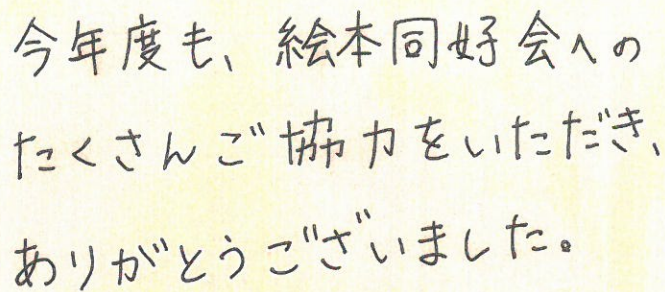 今年度も、絵本同好会への
たくさんご協力をいただき、
ありがとうございました。